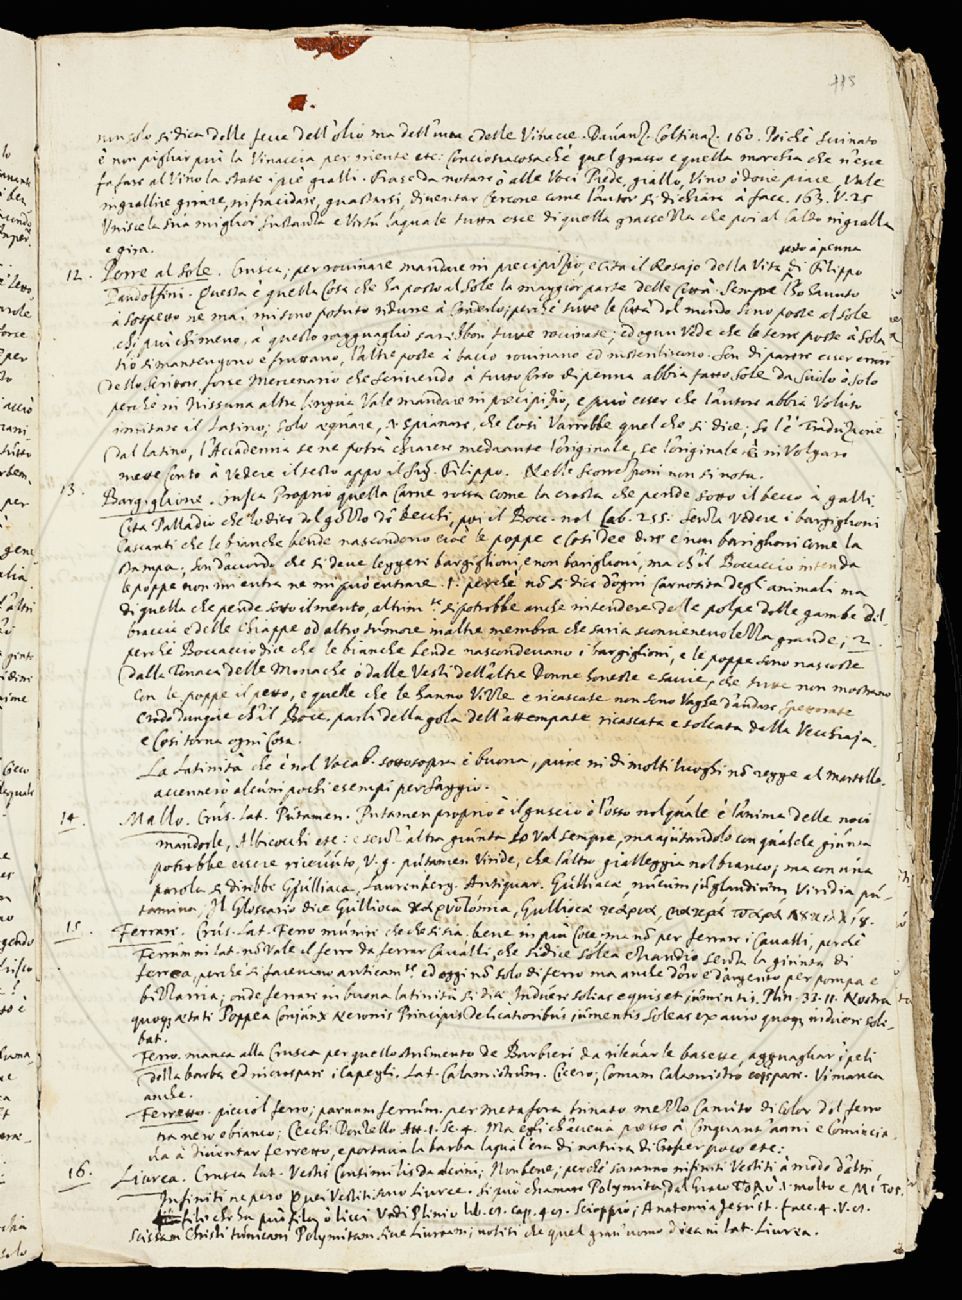 113
non solo si dica delle fecce dell'olio ma dell'uva e delle Vinacce. Davanz. Coltivaz. 160. Poiche svinato
è non pigliar più la Vinaccia per niente etc: Conciosiacosache quel grasso e quella morchia che n'esce
fa fare al Vino la state i piè gialli. Frase da notare ò alle Voci Piede, giallo, Vino ò dove piace, Vale
ingiallire girare, infracidare, guastarsi, diventar Cercone come l'autor si dichiara à facc. 163. V. 25
Unisce la sua miglior sustanza e Virtù laquale tutta esce di quella grassezza che poi al Caldo ingialla
e gira. sesto à penna
12. Porre al Sole. Crusca; per rovinare mandare in precipizio, e cita il Rosajo della Vita di Filippo
Pandolfini. Questa è quella Cosa che ha posto al Sole la maggior parte delle Città. Sempre l'ho havuto
à sospetto ne mai mi sono potuto ridurre à Crederlo; perche tutte le Città del mondo sono poste al Sole
chi più chi meno, à questo ragguaglio sarebbon tutte rovinate; ed ognun Vede che le terre poste à Sola
tio si mantengono e fruttano, l'altre poste à bacio rovinano ed insteriliscono. Son di parere esser errore
dello Scrittore, forse Mercenario che scrivendo à tutto corso di penna abbia fatto Sole da Suolo ò Solo
perche in Nissuna altra lingua Vale mandare in precipizio, e può esser che l'autore abbia Voluto
imitare il Latino; Solo æquare, Spianare, che Cosi Varrebbe quel che si dice; Se l'è Traduzione
dal latino, l'Accademia se ne potrà chiarire mediante l'originale, se l'originale è in Volgare
mette conto à Vedere il testo appo il Sig. Filippo. Nelle Scorrezioni non si nota.
13. Bargiglione. Crusca Proprio quella Carne rossa come la cresta che pende sotto il becco à galli
Cita Palladio che lo dice dal gozzo de becchi, poi il Bocc. nel Lab. 255. Senza Vedere i bargiglioni
Cascanti che le bianche bende nascondono cioè le poppe e Cosi dee dire e non bariglioni come la
stampa, son d'accordo che si deve leggere bargiglioni, e non bariglioni, ma ch'il Boccaccio intenda
le poppe non mi entra ne mi può entrare. 1. perche nō si dice d'ogni Carnosità degl'animali ma
di quella che pende sotto il mento, altrim.te si potrebbe anche intendere delle polpe delle gambe del
braccia e delle Chiappe od altro tumore in altre membra che saria sconvenevolezza grande; 2.
perche Boccaccio dice che le bianche bende nascondevano i bargiglioni, e le poppe sono nascoste
dalla Tonaca delle Monache ò dalle Vesti dell'altre Donne honeste e savie, che tutte non mostrano
Con le poppe il petto, e quelle che le hanno Vizze e ricascate non sono Vaghe d'andare spettorate
Credo dunque ch'il Bocc. parli della gola dell'attempate ricascata e solcata dalla Vecchiaja.
e Cosi torna ogni Cosa.
La Latinità che è nel Vocab. sottosopra è buona, pure in di molti luoghi nō regge al Martello
accennerò alcuni pochi esempi per Saggio.
14. Mallo. Crus. lat. Putamen. Putamen proprio è il guscio ò l'osso nel quale è l'anima delle noci
mandorle, Albicocchi etc: e senz'altra giunta lo Val sempre, ma ajutandolo con qualche giunta
potrebbe essere ricevuto, V.g. putamen Viride, che l'altro gialleggia nel bianco; ma con una
parola si direbbe Gulliaca, Laurenberg. Antiquar. Gulliacæ nucum juglandium Viridia pu-
tamina, Il Glossario dice Gullioca
15. Ferrare. Crus. lat. Ferro munire che che si sia. bene in più Cose ma nō per ferrare i Cavalli, perche
Ferrum in lat. nō Vale il ferro da ferrar Cavalli, che si dice Solea etiandio senza la giunta di
ferrea, perche si facevano anticam.te ed oggi nō solo di ferro ma anche d'oro e d'argento per pompa e
bizzarria; onde ferrare in buona latinità si dice Induere soleas equis et jumentis. Plin. 33. 11. Nostra
quoq; ætati Poppea Conjunx Neronis Principis delicatioribus jumentis soleas ex auro quoq; induere soli-
bat.
Ferro. manca alla Crusca per quello strumento de Barbieri da rilevar le basette, agguagliar i peli
della barba ed increspare i Capegli. Lat. Calamistrum. Cicero; Comam Calamistro crispare. Vi manca
anche.
Ferretto. picciol ferro; parvum ferrum. per metafora trinato mezzo Canuto di Color del ferro
tra nero e bianco; Cecchi Donzello Att. 1. Sc. 4. Ma egli ch'aveva presso à Cinquant'anni e Comincia-
va à diventar ferretto, e portava la barba laqual'era di natura di Coser poco etc:
16. Livrea. Crusca lat. Vestis Consimilis da alcuni; Non bene, perche saranno infiniti Vestiti à modo d'altri
Infiniti ne però quei Vestiti sono Livree. si può chiamare Polymita, dal Greco molto e
filo ch'in più fila ò licci Vedi Plinio lib. cap. Scioppio; Anatomia Jesuit. facc. 4. V.
Scissam Christi tunicam Polymitam sive Livream; notisi che quel gran'uomo dice in lat. Livrea.